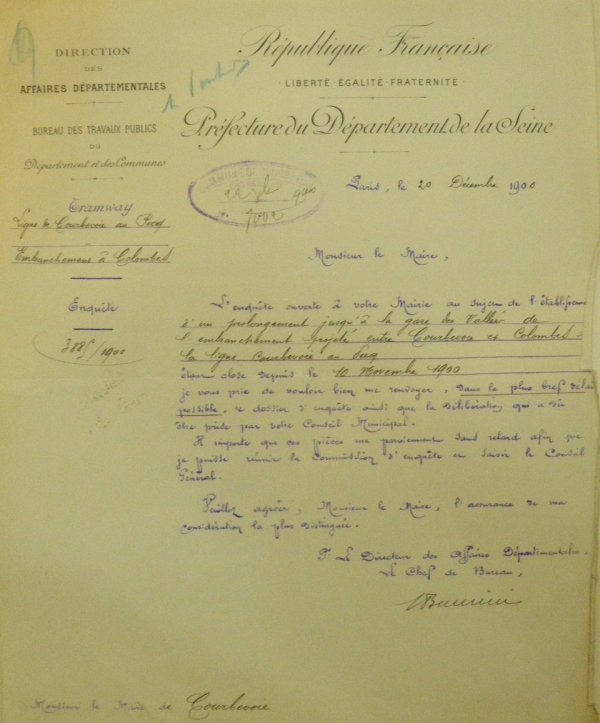 DIRECTION
DES
AFFAIRES DÉPARTEMENTALES
BUREAU DES TRAVAUX PUBLICS
DU
Département et des Communes
République Française
LIBERTÉ · ÉGALITÉ · FRATERNITÉ
Préfecture du Département de la Seine
Paris, le 20 Décembre 1900
Tramway
Ligne de Courbevoie au Pecq
Embranchement à Colombes
Enquête
Monsieur le Maire,
L'enquête ouverte à votre Mairie au sujet de l'établissement
d'un prolongement jusqu'à la gare des Vallées de
l'embranchement projeté entre Courbevoie et Colombes
la ligne Courbevoie au Pecq
étant close depuis le 10 Novembre 1900
je vous prie de vouloir bien me renvoyer, dans le plus bref délai
possible, le dossier d'enquête ainsi que la délibération qui a dû
être prise par votre Conseil Municipal.
Il importe que ces pièces me parviennent sans retard afin que
je puisse réunir la Commission d'enquête et saisir le Conseil
Général.
Veuillez agréer, Monsieur le Maire, l'assurance de ma
considération la plus distinguée.
P. Le Directeur des Affaires Départementales.
Le Chef de Bureau,
Monsieur le Maire de Courbevoie